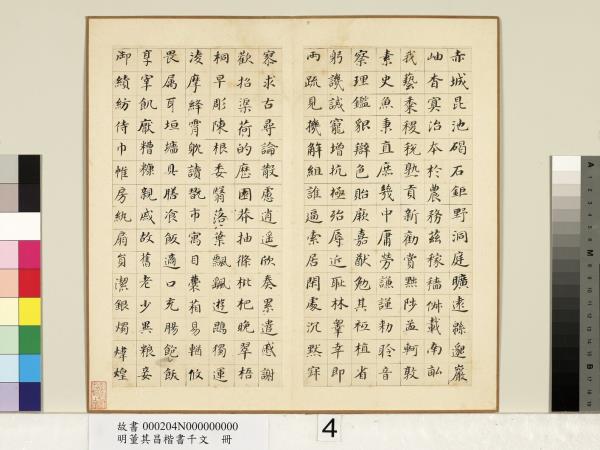 赤城昆池碣石鉅野洞庭曠遠緜邈巖
岫杳冥治本於農務茲稼穡俶載南畝
我藝黍稷稅熟貢新勸賞黜陟孟軻敦
素史魚秉直庶幾中庸勞謙謹勅聆音
察理鑑貌辯色貽厥嘉猷勉其祗植省
躬譏誡寵增抗極殆辱近恥林皋幸即
兩疏見機解組誰逼索居閒處沉默寂
寥求古尋論散慮逍遙欣奏累遣慼謝
歡招渠荷的歷園莽抽條枇杷晚翠梧
桐早彫陳根委翳落葉飄飄遊鵾獨運
凌摩絳霄耽讀翫市寓目囊箱易輶攸
畏属耳垣墻具膳飡飯適口充腸飽飫
享宰飢厭糟糠親戚故舊老少異粮妾
御績紡侍巾帷房紈扇員潔銀燭煒煌
故書 000204N000000000
明董其昌楷書千文 冊
4